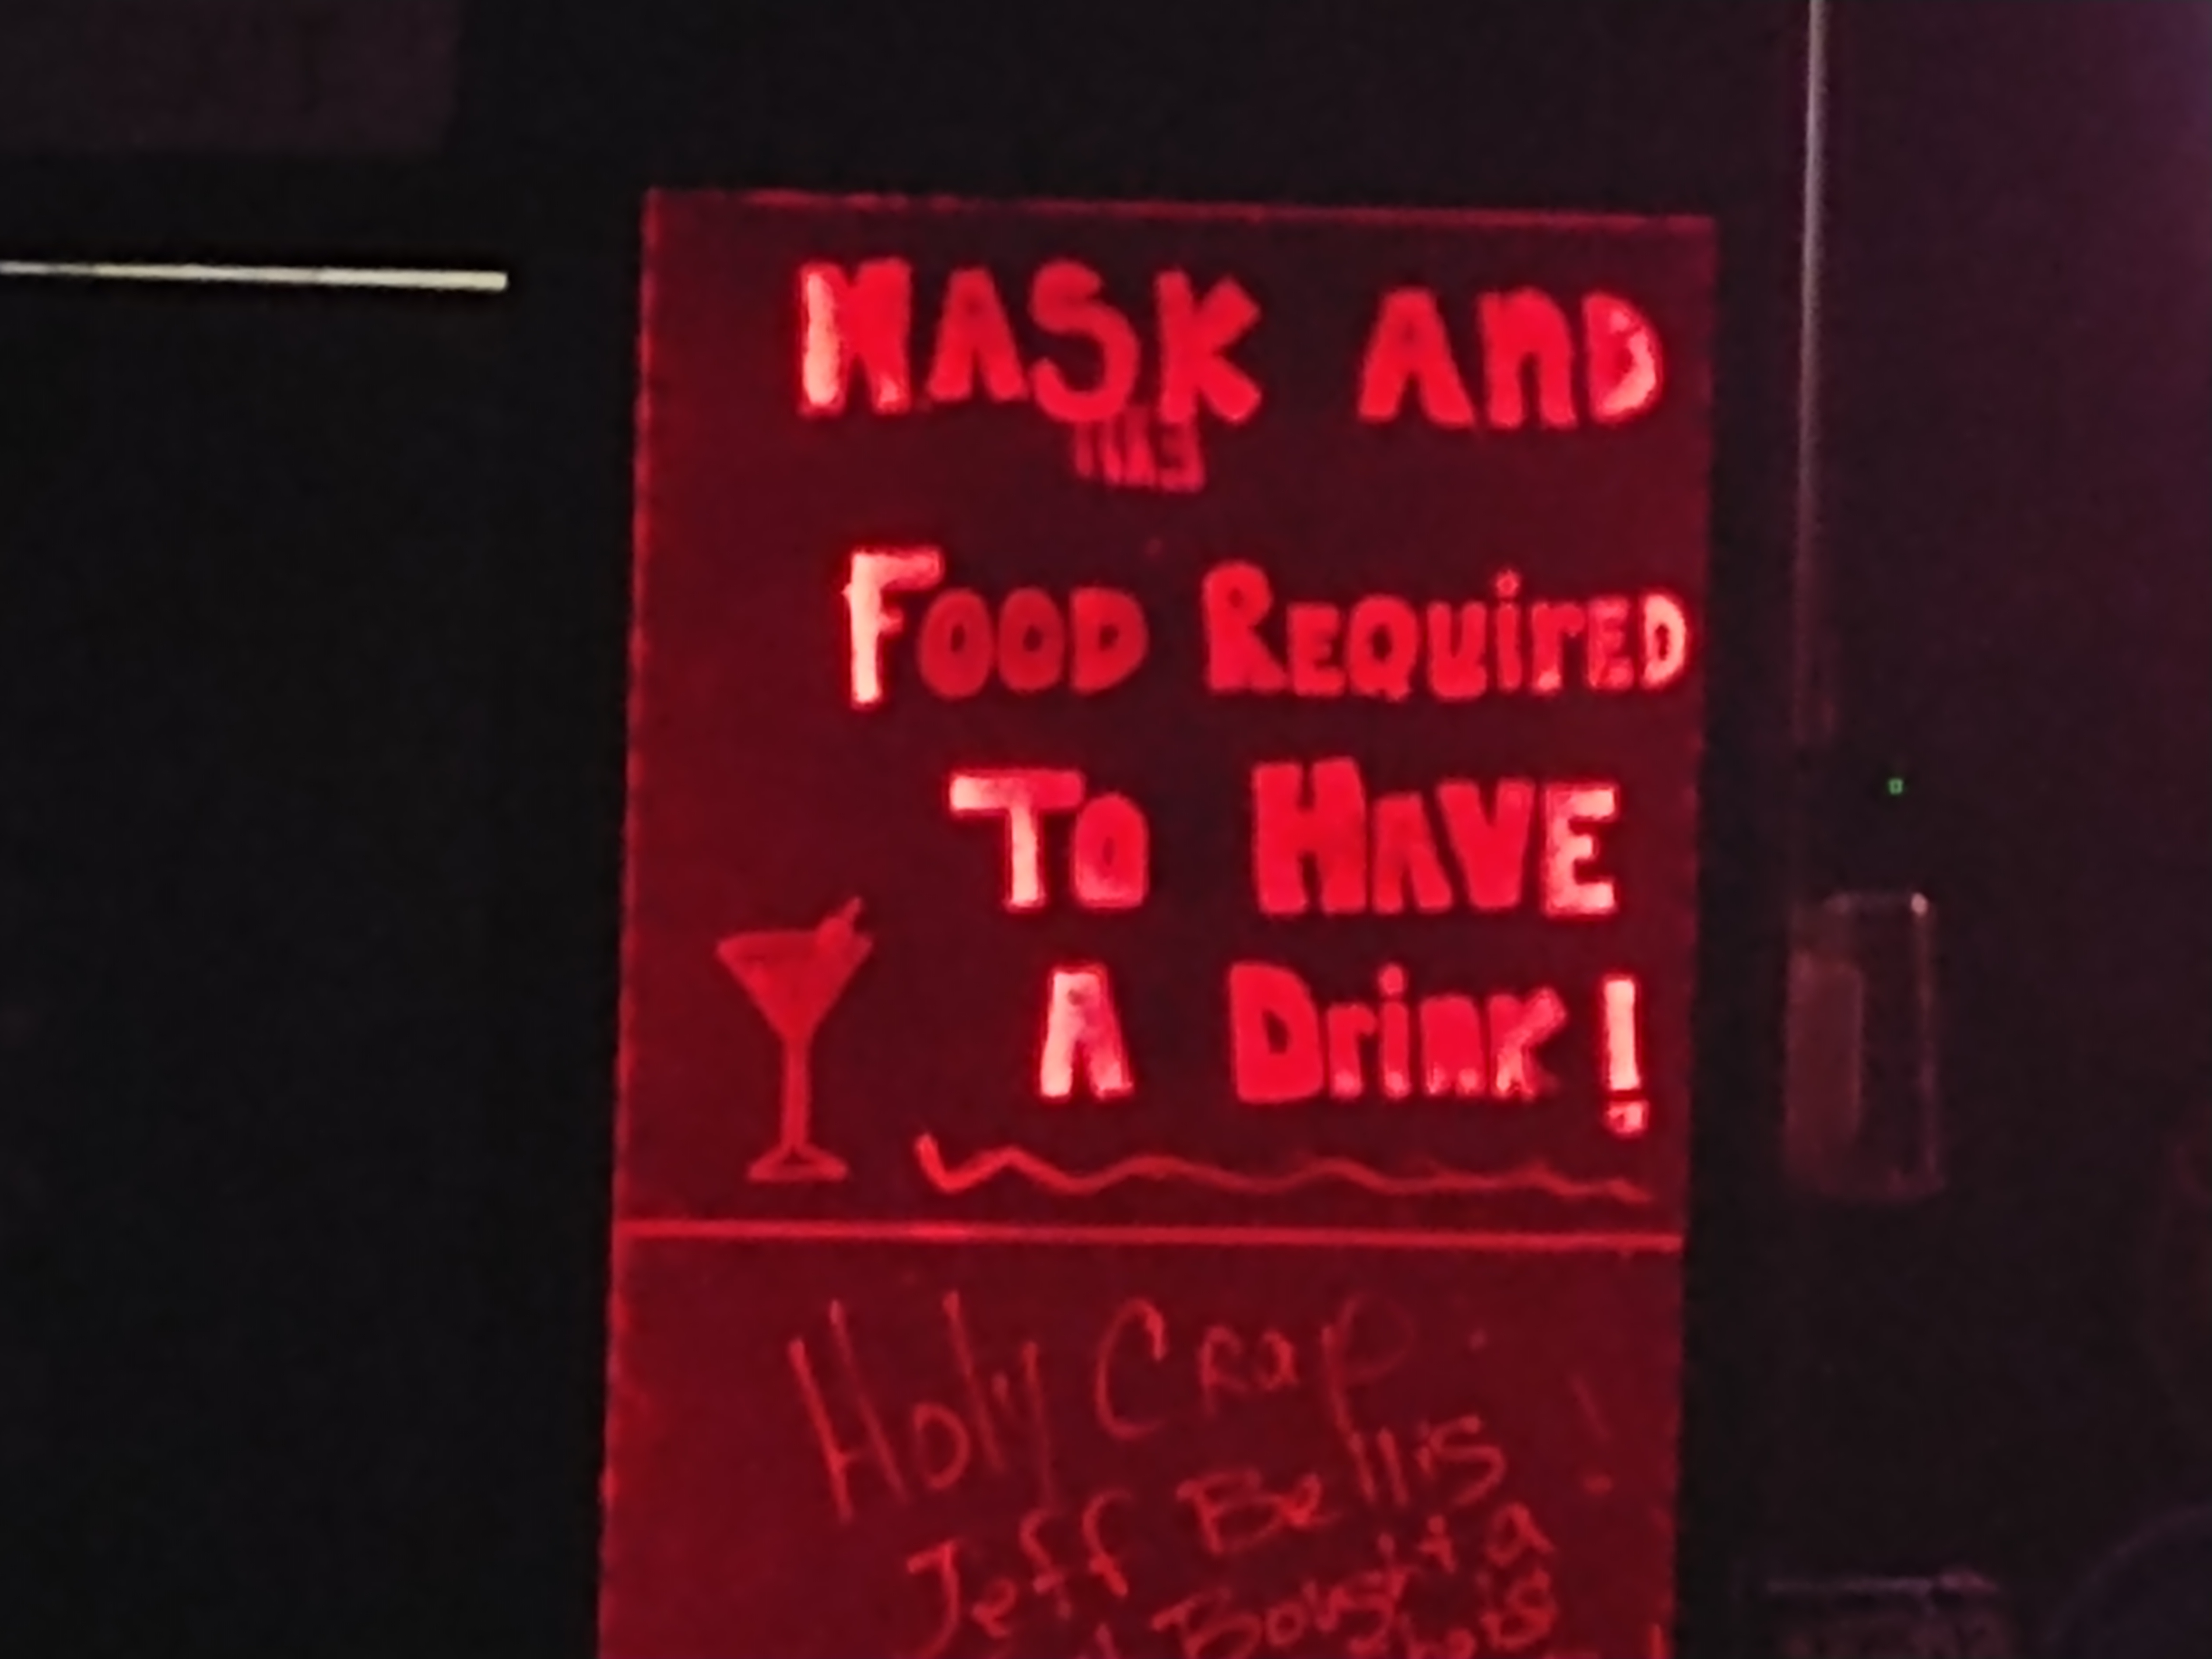 MASK AND
FOOD REQUirED
To HAVE
A Drink!
Holy Crap
Jeff Bellis
Bought a